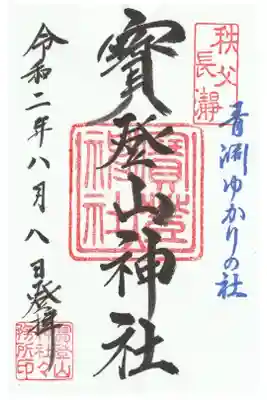 秩父
長瀞
青渕ゆかりの社
寳登山神社
寶登山
神社
令和二年八月八日登拝
寳登山
神社々
務所印